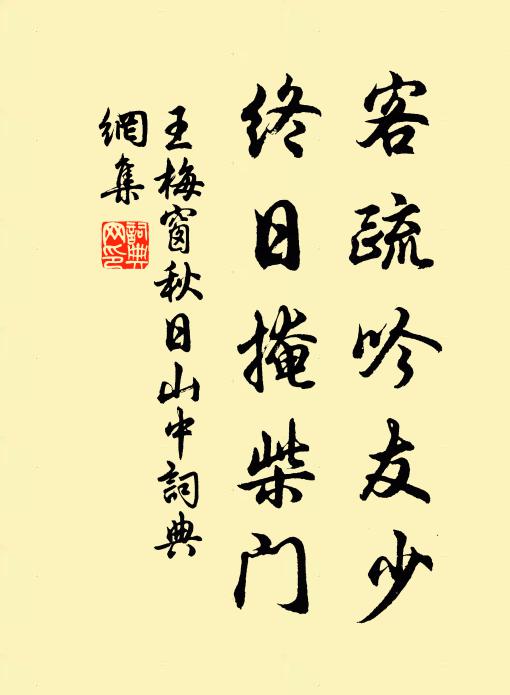 客疏吟友少
終日掩柴門
王梅窗秋日山中詞典
網集
詞典
网印